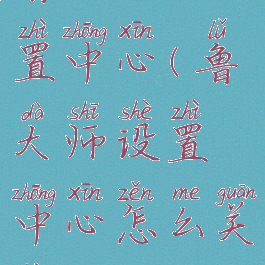 zhì zhōng xīn lǔ
置中心(鲁
dà shī shè zhì
大师设置
zhōng xīn zěn me guān
中心怎么关